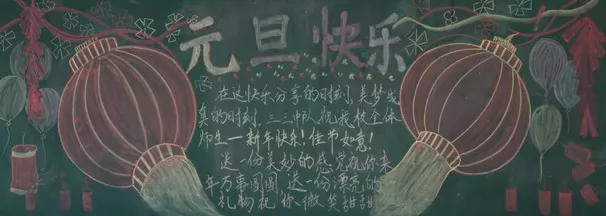 元旦快乐
在这快乐分享的时刻,美梦成
真的时刻,三三中队祝我校全体
师生一新年快乐!佳节如意!
送一份美妙的感觉祝你来
年万事圆圆 送一份漂亮的
礼物祝你微笑甜甜